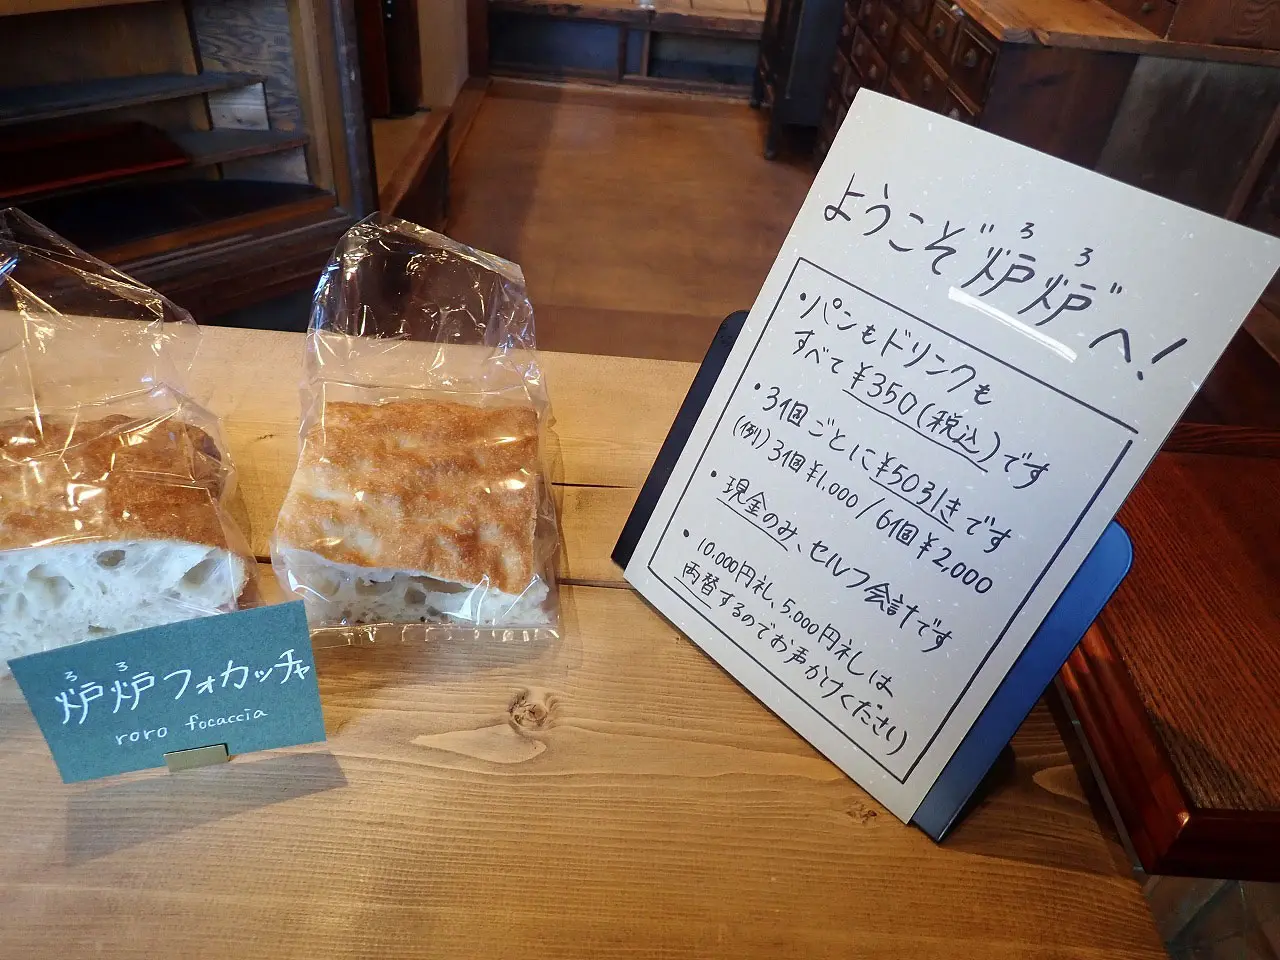 ようこそ"炉炉"へ!
ろ ろ
・パンもドリンクも
すべて¥350(税込)です
・3個ごとに¥50引きです
(例)3個¥1.000/6個¥2,000
・現金のみ、セルフ会計です
・10.000円札、5.000円札は
両替するのでお声がけください
ろ ろ
炉炉フォカッチャ
roro focaccia